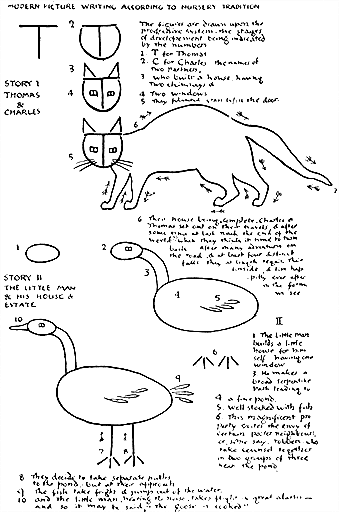 MODERN PICTURE WRITING ACCORDING TO NURSERY TRADITION
The figures are drawn upon the
progressive system. the stages
of development being indicated
by the numbers
1. T for Thomas
2. C for Charles the names of
two partners,
3 who built a house having
two chimneys &
4 Two windows
5 They planned grass before the door.
STORY I
THOMAS
&
CHARLES
1
2
3
4
5
6
7
6 Their house being complete, Charles &
Thomas set out on their travels, & after
some way at last reach the end of the
world what they think it time to turn
back after many adventures on
the road & at least four distinct
falls they at length regain their
fireside & live happily
ever after
in the form
we see
STORY II
THE LITTLE MAN
& HIS HOUSE &
ESTATE
1
2
3
4
5
6
II
1 The little man
builds a little
house for him
self having one
window
3 He makes a
broad serpentine
path leading to
4 a fine pond.
5 Well stocked with fish
6 This magnificent pro
perty excites the envy of
certain poorer neighbours,
or, some say, robbers who
take counsel together
in two groups of three
near the pond
10
9
7
8
8 They decide to take separate paths
to the pond, but at their approach
9 The fish take fright & jump out of the water,
10 and the little man, hearing the noise, takes flight in great alarm —
and so it may be said, "the goose is cooked"